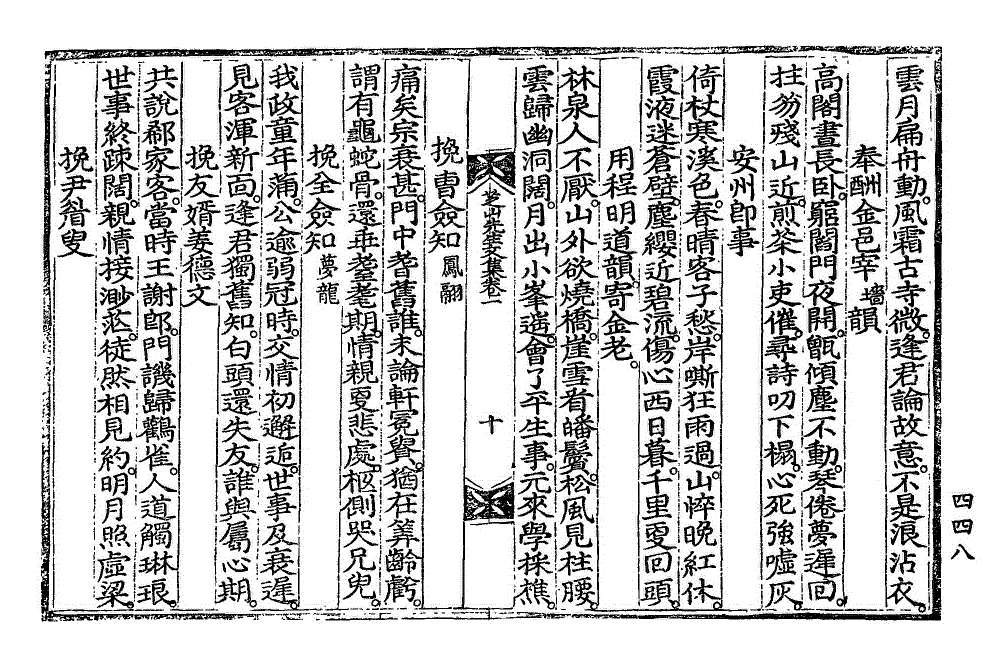 雲月扁舟動。風霜古寺微。逢君論故意。不是浪沾衣。
奉酬金邑宰 墻 韻
高閣晝長臥。窮閻門夜開。甑傾塵不動。琴倦夢遲回。
拄笏殘山近。煎茶小吏催。尋詩叨下榻。心死強噓灰。
安州卽事
倚杖寒溪色。春晴客子愁。岸嘶狂雨過。山悴晚紅休。
霞液迷蒼壁。塵纓近碧流。傷心西日暮。千里更回頭。
用程明道韻。寄金老。
林泉人不厭。山外欲燒橋。崖雪看皤鬢。松風見拄腰。
雲歸幽洞闊。月出小峯遙。會了平生事。元來學採樵。
文集卷一
十
挽曺僉知 鳳翮
痛矣宗衰甚。門中耆舊誰。未論軒冕貴。猶在筭齡虧。
謂有龜蛇骨。還乖耋耄期。情親更悲處。柩側哭兄兒。
挽全僉知 夢龍
我政童年滿。公逾弱冠時。交情初邂逅。世事及衰遲。
見客渾新面。逢君獨舊知。白頭還失友。誰與屬心期。
挽友婿姜德文
共說郗家客。當時王謝郎。門譏歸鸛雀。人道觸琳琅。
世事終疎闊。親情接渺茫。徒然相見約。明月照虛梁。
挽尹叟
四四八